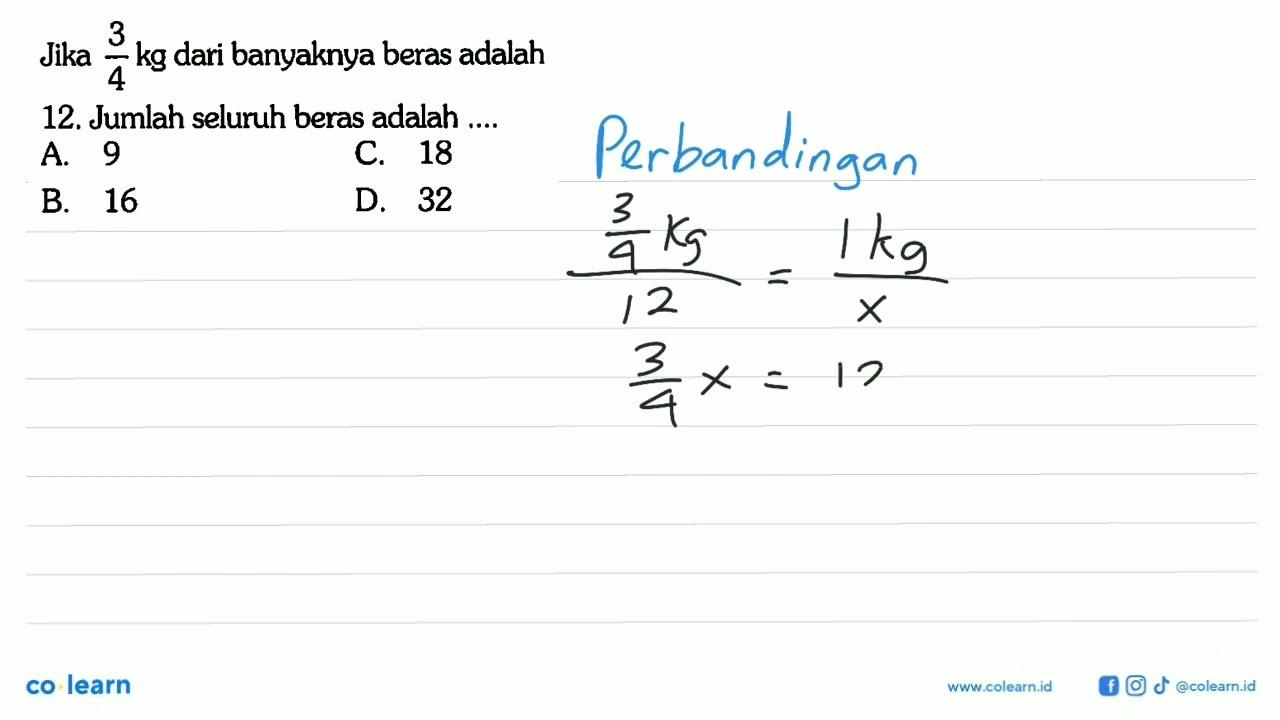 Jika 3/4 kg dari banyaknya beras adalah
12. Jumlah seluruh beras adalah ....
A. 9 C. 18
B. 16 D. 32
Perbandingan
3/4 kg / 12 = 1 kg / x
3/4 x = 12
co learn
www.colearn.id @colearn.id